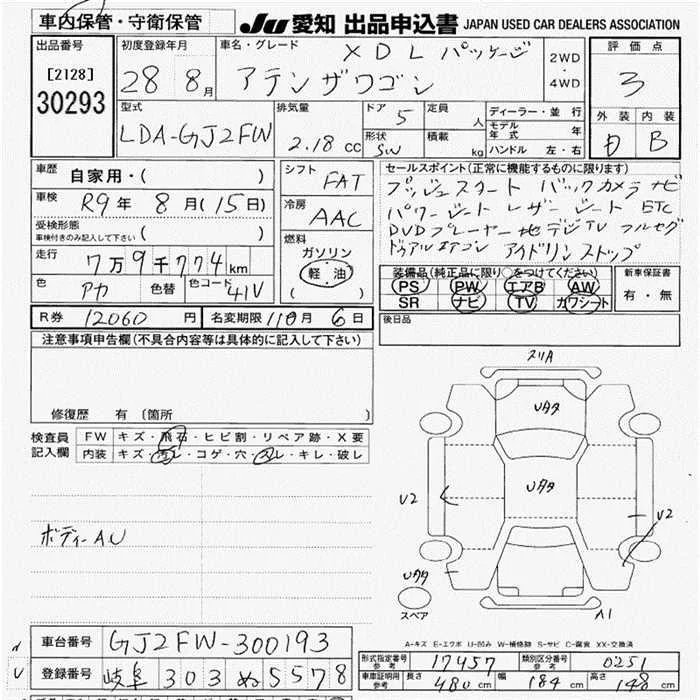 車内保管・守衛保管
JU 愛知 出品申込書 JAPAN USED CAR DEALERS ASSOCIATION
出品番号 [2128] 30293
初度登録年月 28 8月
車名・グレード XDL パッケージ アテンザワゴン
2WD ・ 4WD
評価点 3
外装 D 内装 B
型式 LDA-GJ2FW
排気量 2.18 cc
ドア 5
定員 人
形状 SW
積載 kg
ディーラー・並行
モデル年式 年
ハンドル 左・右
車歴 自家用・( )
車検 R9年 8月(15日)
受検形態
車検付きのみ記入して下さい ( )
走行 7万9千774km
色 アカ 色替 色コード 41V
シフト FAT
冷房 AAC
燃料 ガソリン 軽油 ( )
セールスポイント(正常に機能するものに限ります)
プッシュスタート バックカメラ ナビ
パワーシート レザーシート ETC
DVDプレーヤー 地デジTV フルセグ
デュアルエアコン アイドリンストップ
装備品(純正品に限り○をつけてください)
PS PW エアB AW
SR ナビ TV カワシート
新車保証書 有・無
R券 12060円 名変期限 11月 6日
後日品
注意事項申告欄(不具合内容等は具体的に記入して下さい)
修復歴 有〔箇所 〕
検査員記入欄
FW キズ・飛石・ヒビ割・リペア跡・X要
内装 キズ・汚レ・コゲ・穴・スレ・キレ・破レ
ボディーAU
スリA
Uタタ
Uタタ
U2
U2
Uタタ
スペア
A1
A-キズ E-エクボ U-凹み W-補修跡 S-サビ C-腐食 XX-交換済
車台番号 GJ2FW-300193
登録番号 岐阜 303 ぬ 5578
型式指定番号参考 17457 類別区分番号参考 0251
車庫証明用参考 長さ 480cm 幅 184cm 高さ 148cm